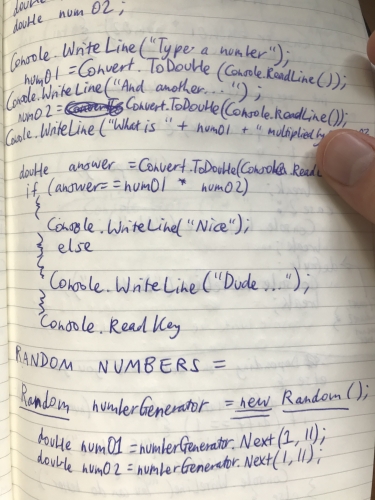 double num02;
Console.WriteLine("Type a number");
num01 = Convert.ToDouble(Console.ReadLine());
Console.WriteLine("And another...");
num02 = Convert.ToDouble(Console.ReadLine());
Console.WriteLine("What is " + num01 + " multiplied by
double answer = Convert.ToDouble(Console.Read
if (answer == num01 * num02)
{
Console.WriteLine("Nice");
}
else
{
Console.WriteLine("Dude...");
}
Console.ReadKey
RANDOM NUMBERS =
Random numberGenerator = new Random();
double num01 = numberGenerator.Next(1, 11);
double num02 = numberGenerator.Next(1, 11);